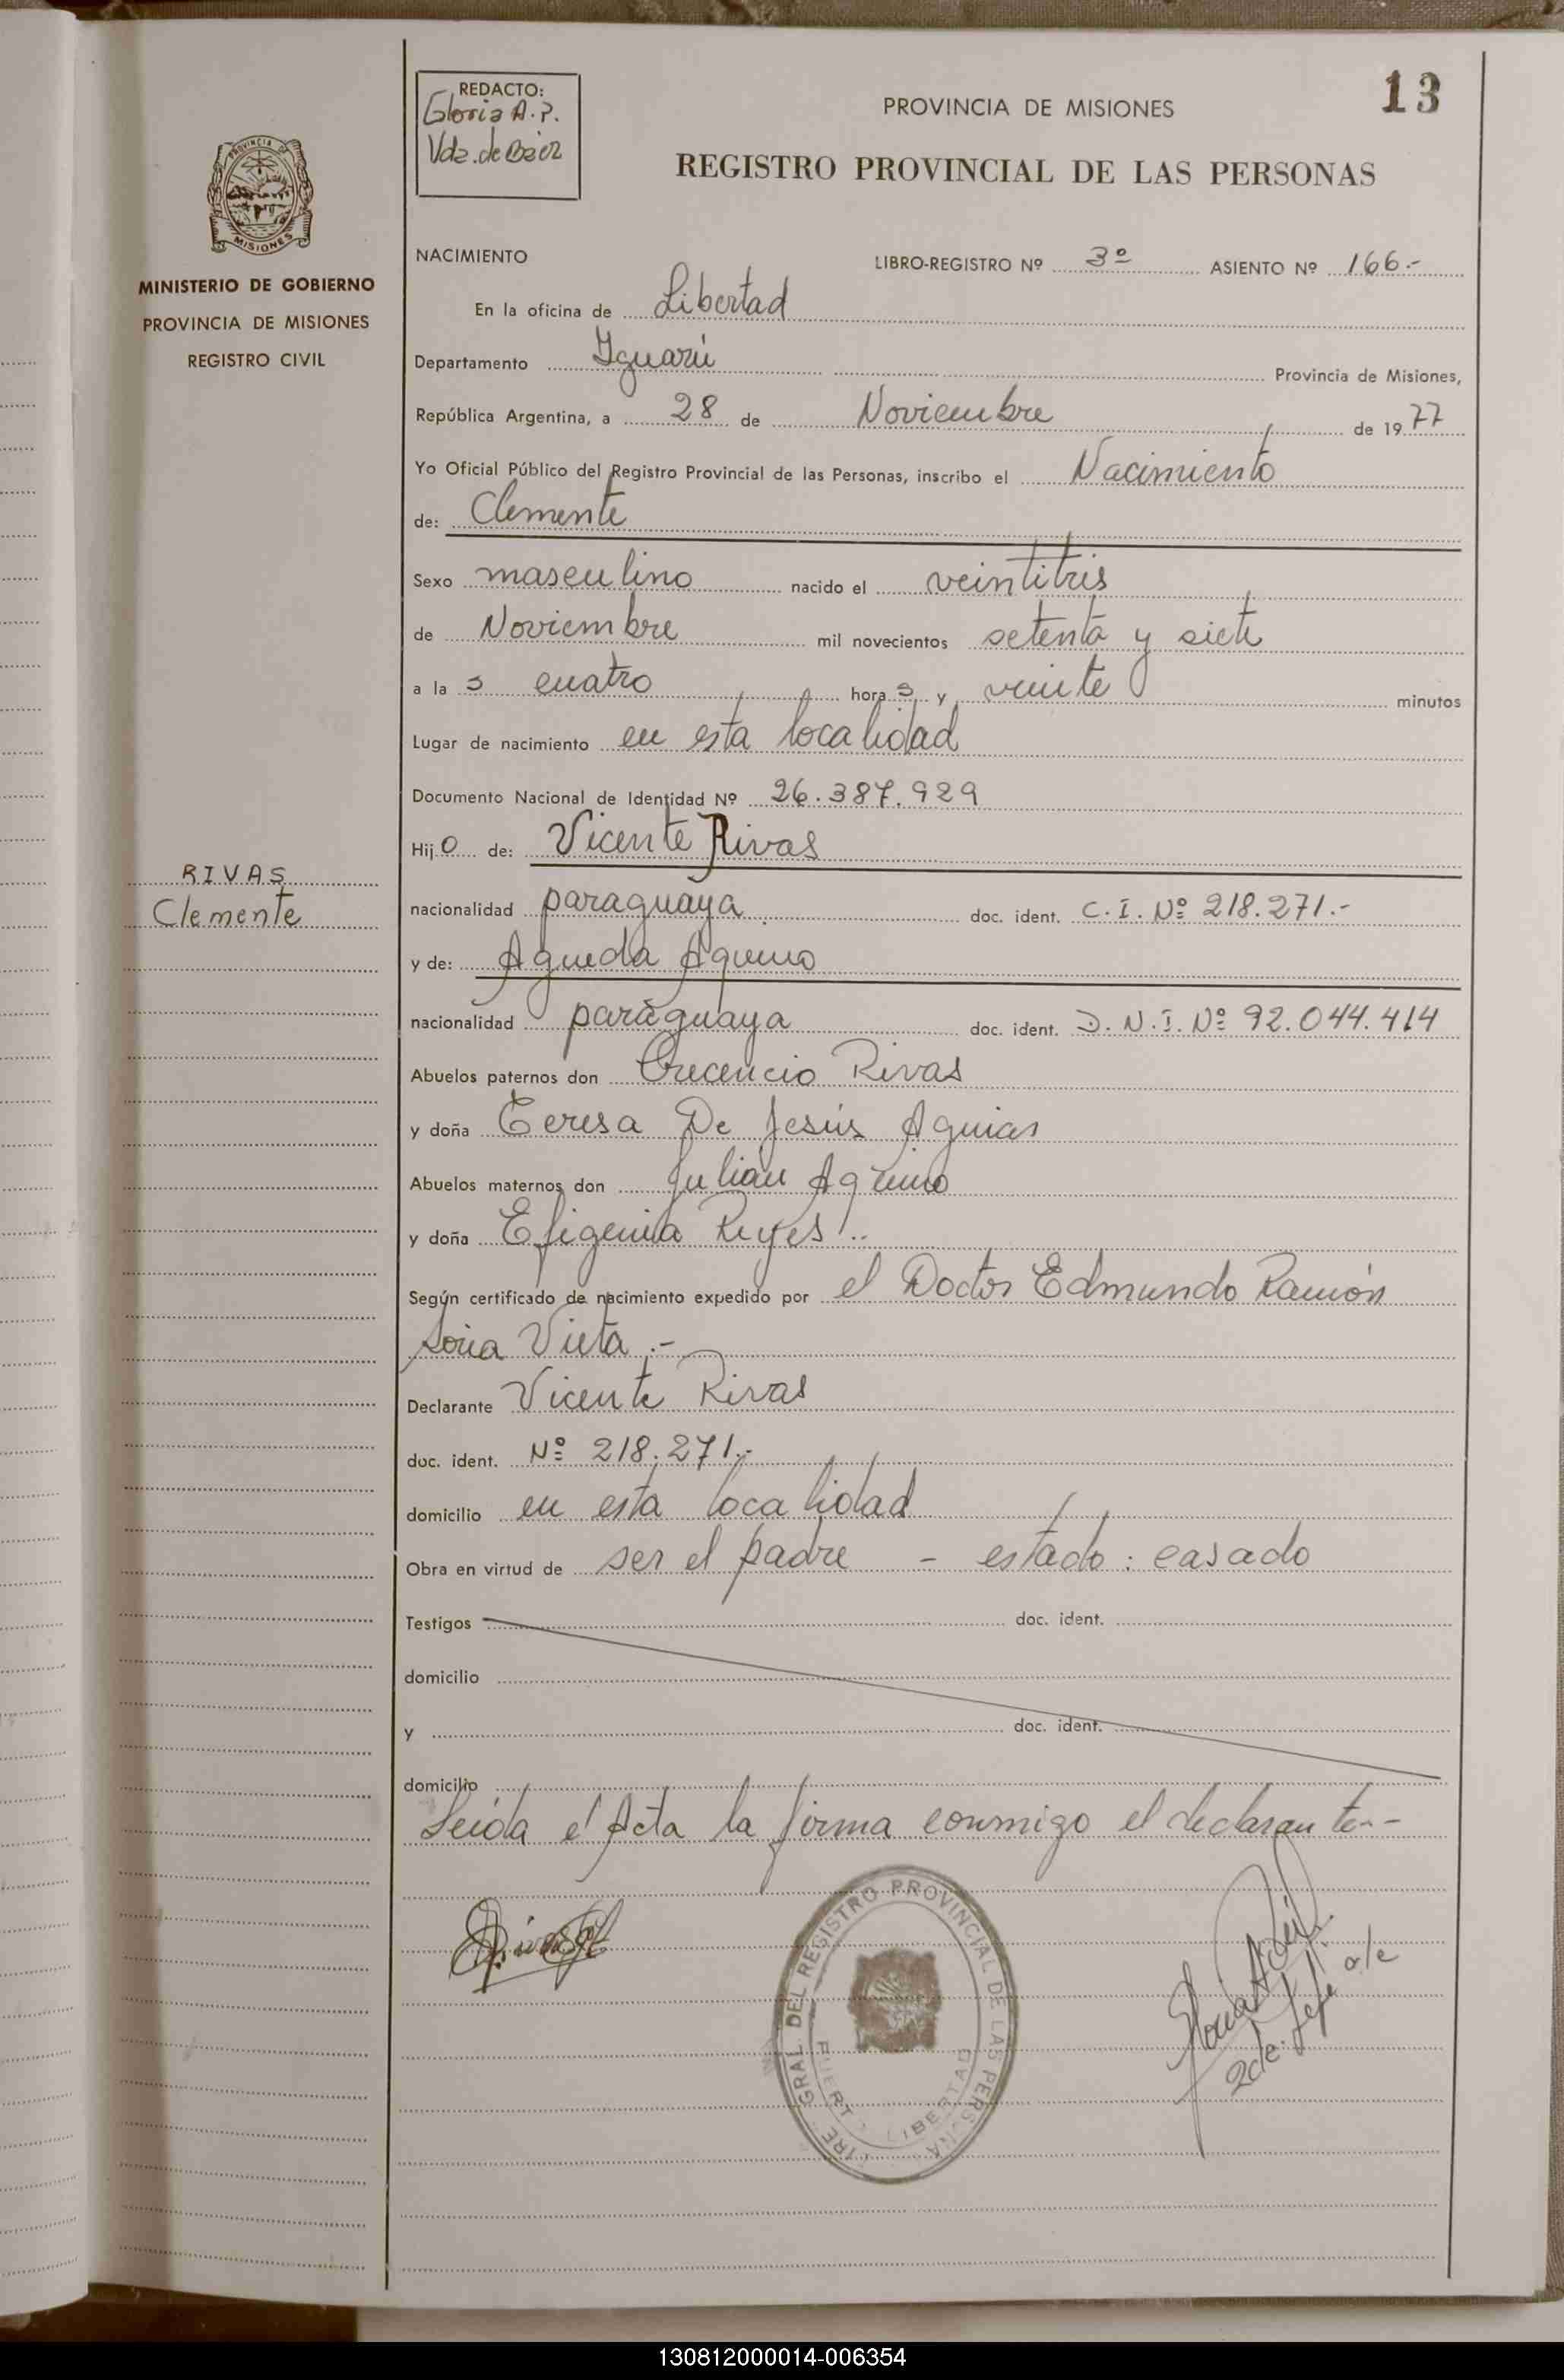 13
REDACTO:
Gloria A. P.
Vda. de Báez
PROVINCIA DE MISIONES
REGISTRO PROVINCIAL DE LAS PERSONAS
PROVINCIA DE
MISIONES
MINISTERIO DE GOBIERNO
PROVINCIA DE MISIONES
REGISTRO CIVIL
RIVAS
Clemente
NACIMIENTO LIBRO-REGISTRO Nº 3º ASIENTO Nº 166.-
En la oficina de Libertad
Departamento Iguazú Provincia de Misiones,
República Argentina, a 28 de Noviembre de 1977
Yo Oficial Público del Registro Provincial de las Personas, inscribo el Nacimiento
de: Clemente
Sexo masculino nacido el veintitrés
de Noviembre mil novecientos setenta y siete
a las cuatro horas y veinte minutos
Lugar de nacimiento en esta localidad
Documento Nacional de Identidad Nº 26.387.929
Hijo de: Vicente Rivas
nacionalidad paraguaya doc. ident. C. I. Nº 218.271.-
y de: Agueda Aquino
nacionalidad paraguaya doc. ident. D. N. I. Nº 92.044.414
Abuelos paternos don Crecencio Rivas
y doña Teresa De Jesús Aguiar
Abuelos maternos don Julian Aquino
y doña Efigenia Reyes.-
Según certificado de nacimiento expedido por el Doctor Edmundo Ramón
Soria Vieta.-
Declarante Vicente Rivas
doc. ident. Nº 218.271.-
domicilio en esta localidad
Obra en virtud de ser el padre - estado: casado
Testigos doc. ident.
domicilio
y doc. ident.
domicilio
Leída el Acta la firma conmigo el declarante.-
DIRE. GRAL. DEL REGISTRO PROVINCIAL DE LAS PERSONAS
PUERTO LIBERTAD
2de. Jefe a/c
130812000014-006354